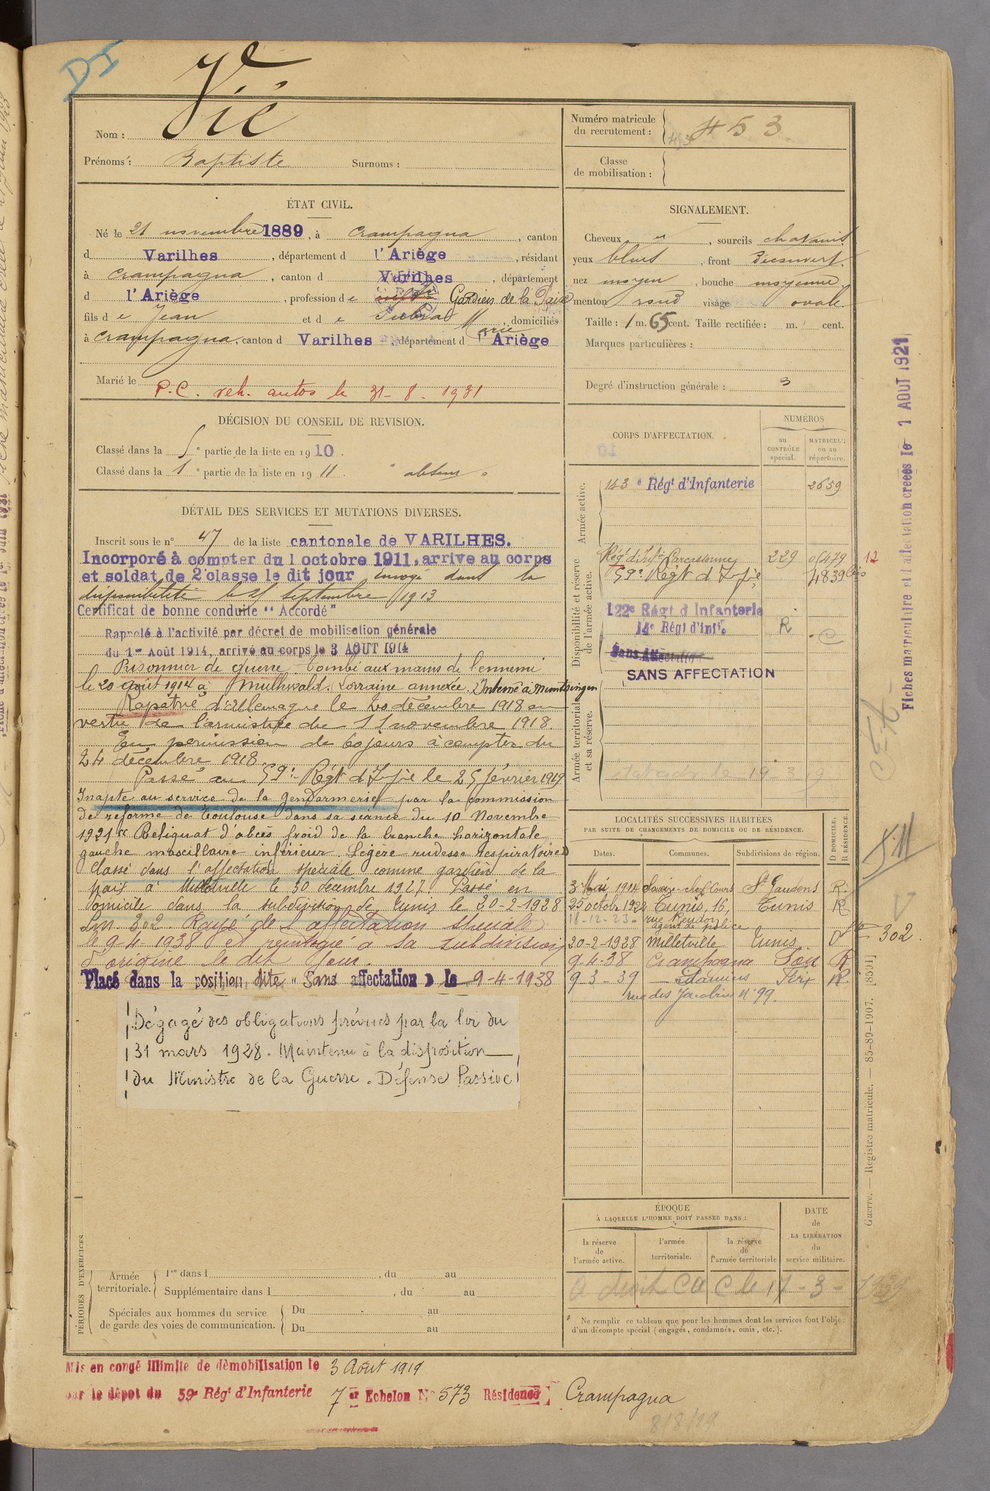 DI
Nom : Vié
Prénoms : Baptiste Surnoms :
Numéro matricule
du recrutement : 453
Classe
de mobilisation :
ÉTAT CIVIL.
Né le 21 novembre 1889, à Crampagna, canton
d Varilhes, département d l'Ariège, résidant
à Crampagna, canton d Varilhes, département
d l'Ariège, profession de Gardien de la Paix
fils de Jean et de Marie, domiciliés
à Crampagna, canton d Varilhes département d l'Ariège
Marié le
P.C. veh. autos le 31-8-1931
SIGNALEMENT.
Cheveux et, sourcils chatains
yeux bleus, front découvert
nez moyen, bouche moyenne
menton rond visage ovale
Taille : 1 m. 65 cent. Taille rectifiée : m. cent.
Marques particulières :
Degré d'instruction générale : 3
DÉCISION DU CONSEIL DE REVISION.
Classé dans la 5e partie de la liste en 1910.
Classé dans la 1e partie de la liste en 1911. "absent"
DÉTAIL DES SERVICES ET MUTATIONS DIVERSES.
Inscrit sous le n° 47 de la liste cantonale de VARILHES.
Incorporé à compter du 1 octobre 1911, arrive au corps
et soldat de 2e classe le dit jour envoyé dans la
disponibilité le septembre 1913
Certificat de bonne conduite "Accordé"
Rappelé à l'activité par décret de mobilisation générale
du 1er Août 1914, arrivé au corps le 3 AOUT 1914
Prisonnier de guerre tombé aux mains de l'ennemi
le 20 août 1914 à Muthwald. Lorraine annexée. Interné à Munsingen
Rapatrié d'Allemagne le 20 décembre 1918 en
vertu de l'armistice du 11 novembre 1918.
En permission de 60 jours à compter du
24 décembre 1918
Passé au 59e Régt d'Infie le 25 février 1919
Inapte au service de la gendarmerie par la commission
de réforme de Toulouse dans sa séance du 10 Novembre
1921 Reliquat d'abcès froid de la branche horizontale
gauche maxcillaire inférieur. Légère rudesse respiratoire
Classé dans l'affectation spéciale comme gardien de la
paix à le 30 décembre 1927 Passé en
domicile dans la subdivision de Tunis le 20-2-1928
Ln. 302. Rayé de l'affectation spéciale
le 9-4-1938 et réintégré à sa subdivision
d'origine le dit jour.
Placé dans la position dite "Sans affectation" le 9-4-1938
Dégagé des obligations prévues par la loi du
31 mars 1928. Maintenu à la disposition
du Ministre de la Guerre. Défense Passive
CORPS D'AFFECTATION.
NUMÉROS
DU CONTRÔLE spécial.
MATRICULE OU AU répertoire.
Armée active.
143e Régt d'Infanterie 2659
Disponibilité et réserve
de l'armée active.
Régt d'Infie Carcassonne 229
59e Régt d'Infie 4839 bis
122e Régt d'Infanterie
14e Régt d'Infie R
Sans Affectation
SANS AFFECTATION
Armée territoriale
et sa réserve.
LOCALITÉS SUCCESSIVES HABITÉES
PAR SUITE DE CHANGEMENTS DE DOMICILE OU DE RÉSIDENCE.
Dates. Communes. Subdivisions de région. D DOMICILE. R RÉSIDENCE.
3 Mai 1914 St Gaudens R
25 octob. 1922 Tunis, 16, Tunis R
18-12-23 agent de police
20-2-1928 Tunis D
9-4-38 Crampagna R
9-3-39 Pamiers Foix R
rue des Jacobins N° 99.
302
ÉPOQUE
À LAQUELLE L'HOMME DOIT PASSER DANS :
la réserve de l'armée active.
l'armée territoriale.
la réserve de l'armée territoriale
DATE de LA LIBÉRATION du service militaire.
Ne remplir ce tableau que pour les hommes dont les services font l'objet
d'un décompte spécial (engagés, condamnés, omis, etc.).
PÉRIODES D'EXERCICES.
Armée territoriale.
1re dans l , du au
Supplémentaire dans l , du au
Spéciales aux hommes du service
de garde des voies de communication.
Du au
Du au
Mis en congé illimité de démobilisation le 3 Août 1919
sur le dépôt du 59e Régt d'Infanterie 7e Echelon N° 573 Résidence Crampagna
Fiches matriculaire et d'affectation créées le 1 AOUT 1921
Guerre. — Registre matricule. — 85-89-1907.